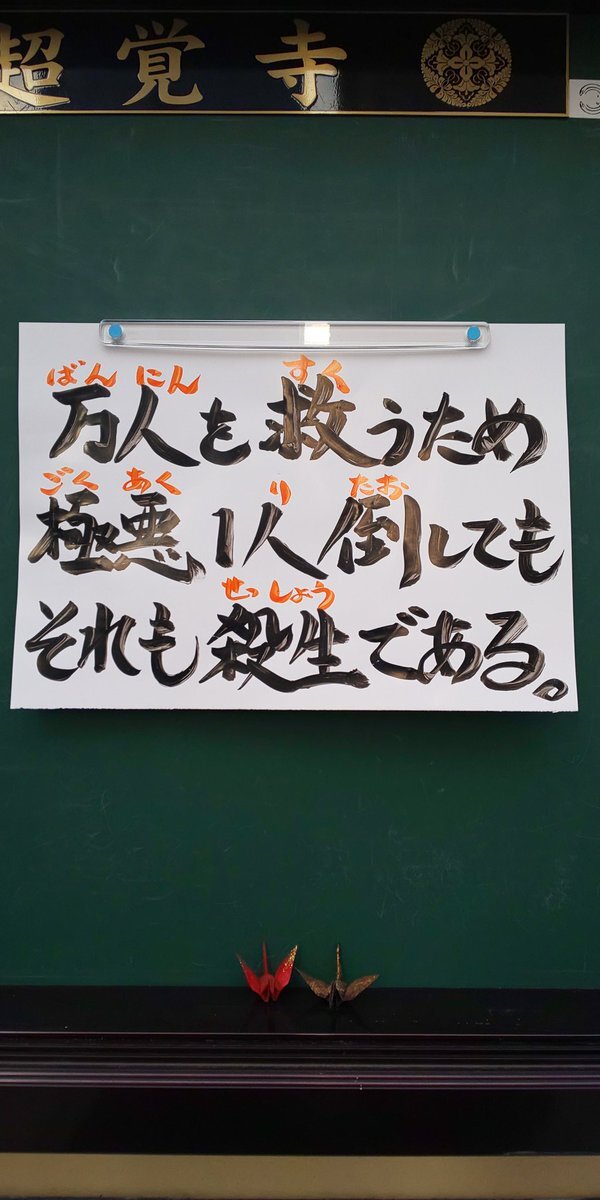 超覚寺
ばんにん すく
万人を救うため
ごくあく り たお
極悪1人倒しても
せっしょう
それも殺生である。